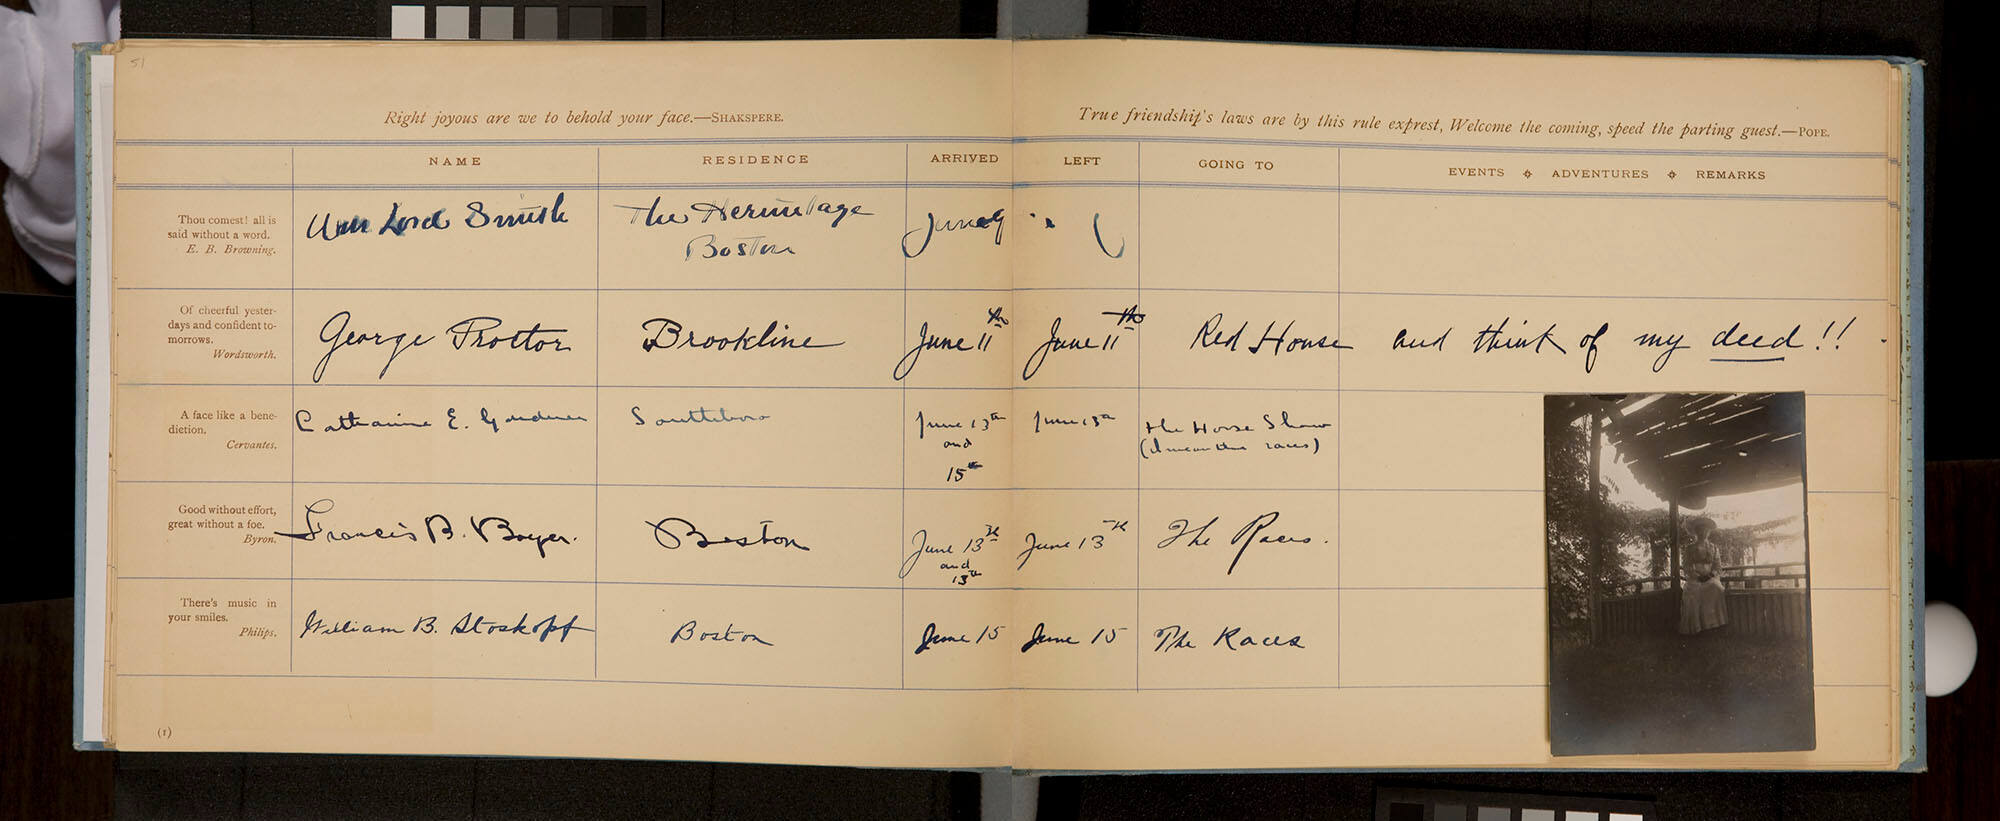 51
Right joyous are we to behold your face.—SHAKSPERE.
True friendship's laws are by this rule exprest, Welcome the coming, speed the parting guest.—POPE.
NAME RESIDENCE ARRIVED LEFT GOING TO EVENTS ADVENTURES REMARKS
Thou comest! all is
said without a word.
E. B. Browning.
Wm Lord Smith The Hermitage June 9
Boston
Of cheerful yester-
days and confident to-
morrows.
Wordsworth.
George Proctor Brookline June 11th June 11th Red House and think of my deed!!
A face like a bene-
diction.
Cervantes.
Catharine E. Gardner Southboro June 13th June 13th the Horse Show
and (I mean the races)
15th
Good without effort,
great without a foe.
Byron.
Francis B. Boyer. Boston June 13th June 13th The Races.
and
There's music in
your smiles.
Philips.
William B. Stoskopf Boston June 15 June 15 The Races
(1)